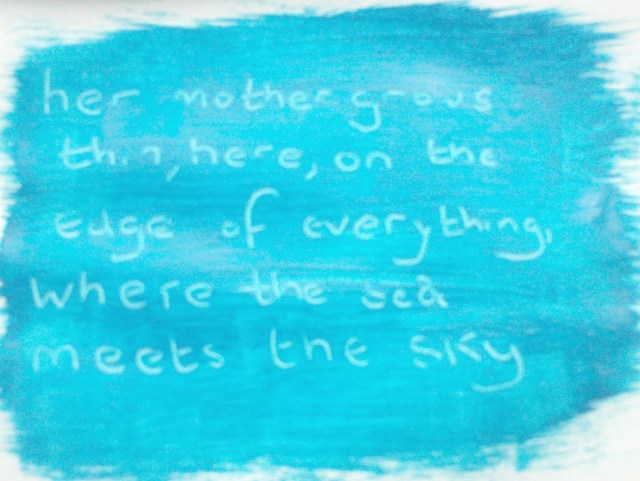 her mother grows
thin, here, on the
edge of everything,
where the sea
meets the sky